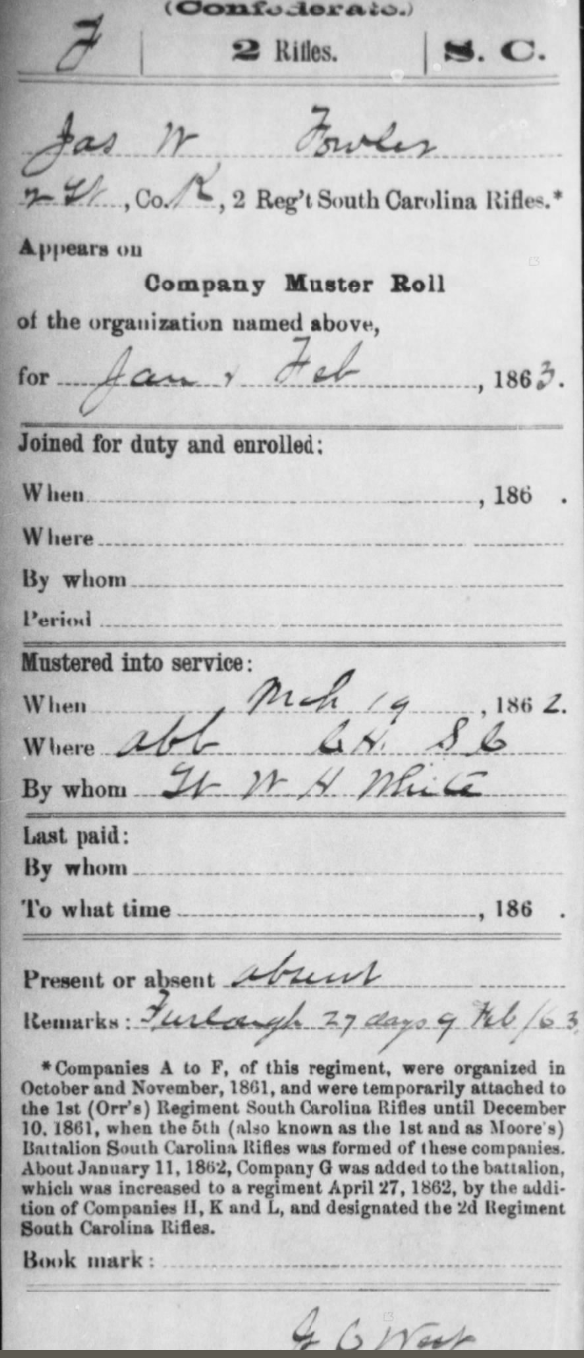 (Confederate.)
F | 2 Rifles. | S. C.
Jas W Fowler
2 Lt, Co. K, 2 Reg't South Carolina Rifles.*
Appears on
Company Muster Roll
of the organization named above,
for Jan & Feb, 1863.
Joined for duty and enrolled:
When, 186 .
Where
By whom
Period
Mustered into service:
When Mch 19, 1862.
Where Abb C.H. S C
By whom Lt W H White
Last paid:
By whom
To what time, 186 .
Present or absent absent
Remarks: Furlough 27 days 9 Feb /63
*Companies A to F, of this regiment, were organized in
October and November, 1861, and were temporarily attached to
the 1st (Orr's) Regiment South Carolina Rifles until December
10, 1861, when the 5th (also known as the 1st and as Moore's)
Battalion South Carolina Rifles was formed of these companies.
About January 11, 1862, Company G was added to the battalion,
which was increased to a regiment April 27, 1862, by the addi-
tion of Companies H, K and L, and designated the 2d Regiment
South Carolina Rifles.
Book mark:
C West